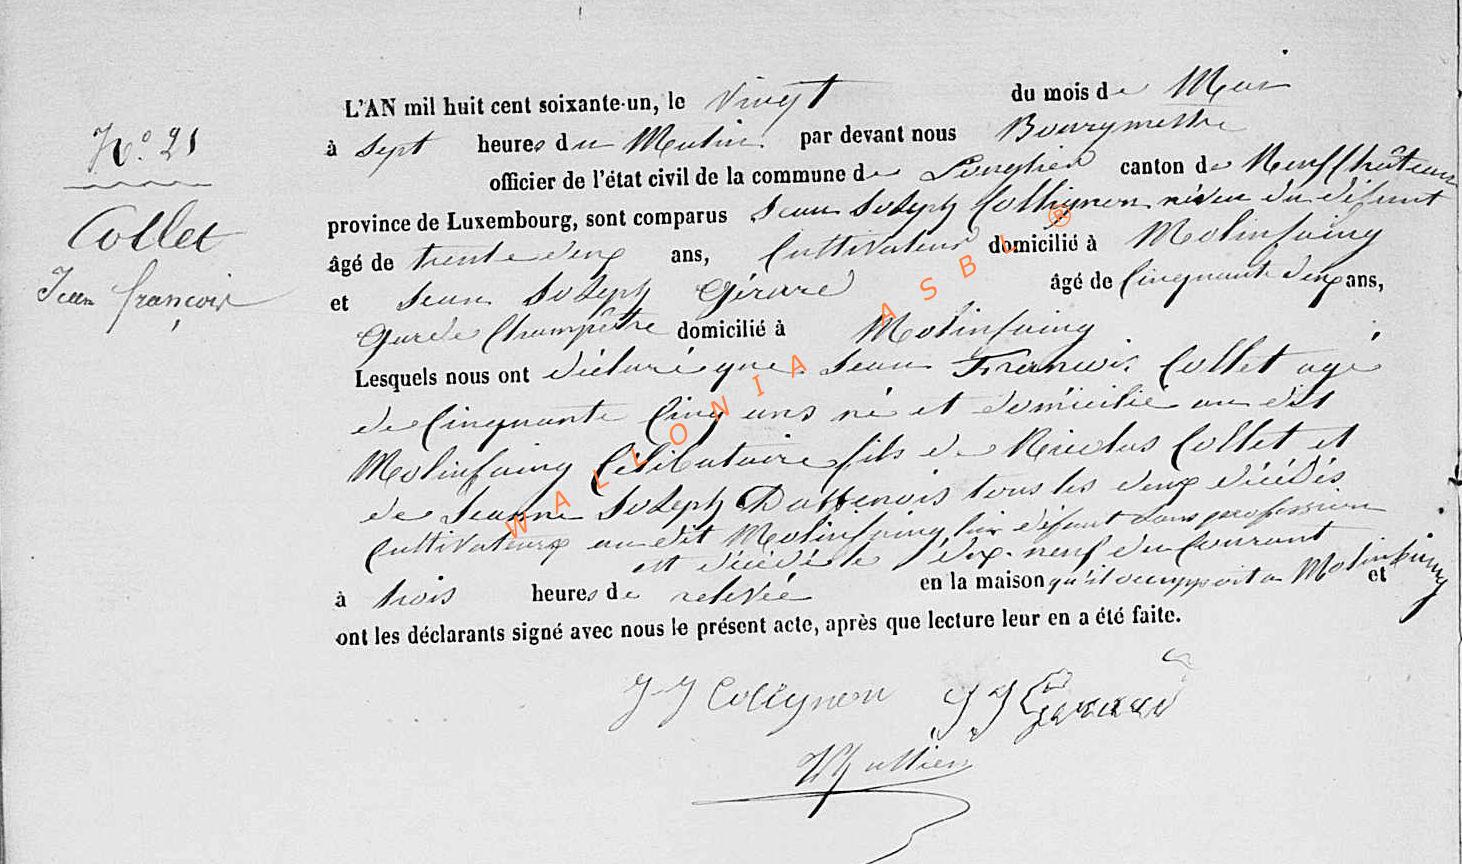 L'AN mil huit cent soixante-un, le vingt du mois de Mai
N° 21
à Sept heures du Matin par devant nous Bourgmestre
officier de l'état civil de la commune de Longlier canton de Neufchâteau
Collet
province de Luxembourg, sont comparus Jean Joseph Collignon néveu du défunt
âgé de trente deux ans, Cultivateur domicilié à Molinfaing
Jean françois
et Jean Joseph Gérard âgé de Cinquante deux ans,
Garde Champêtre domicilié à Molinfaing
Lesquels nous ont déclaré que Jean Francois Collet agé
de Cinquante Cinq ans né et domicilié au dit
Molinfaing Célibataire fils de Nicolas Collet et
de Jeanne Joseph tous les deux décédés
Cultivateurs au dit Molinfaing, défunt sans profession
est décédé le dix-neuf du Courant
à trois heures de relevée en la maison qu'il occuppoit a Molinfaing et
ont les déclarants signé avec nous le présent acte, après que lecture leur en a été faite.
J J Collignon J J Gerard
WALLONIA ASBL ®